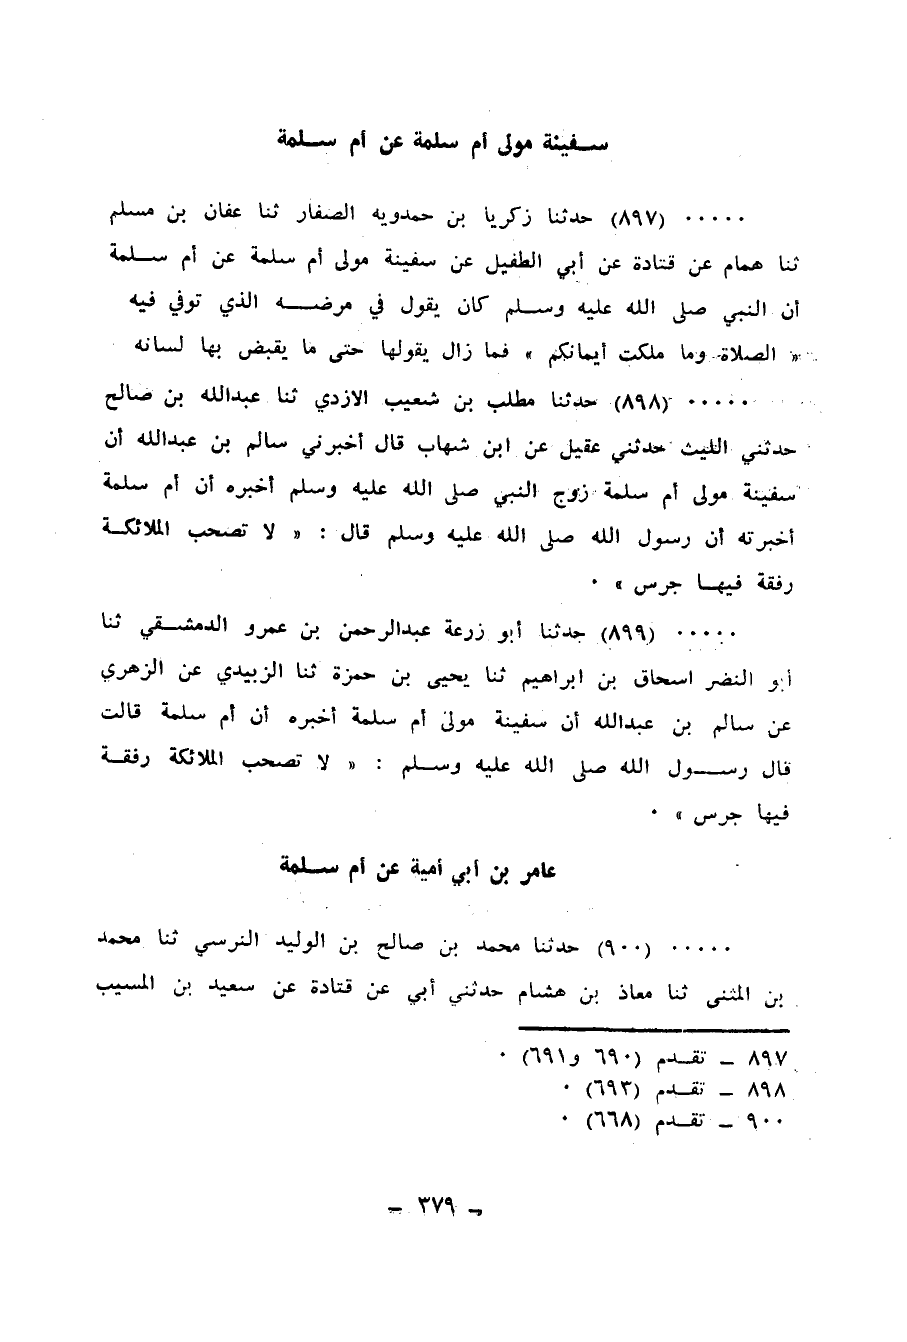 سفينة مولى أم سلمة عن أم سلمة
..... (٨٩٧) حدثنا زكريا بن حمدويه الصفار ثنا عفان بن مسلم
ثنا همام عن قتادة عن أبي الطفيل عن سفينة مولى أم سلمة عن أم سلمة
أن النبي صلى الله عليه وسلم كان يقول في مرضه الذي توفي فيه
« الصلاة وما ملكت أيمانكم » فما زال يقولها حتى ما يقبض بها لسانه
..... (٨٩٨) حدثنا مطلب بن شعيب الازدي ثنا عبدالله بن صالح
حدثني الليث حدثني عقيل عن ابن شهاب قال أخبرني سالم بن عبدالله أن
سفينة مولى أم سلمة زوج النبي صلى الله عليه وسلم أخبره أن أم سلمة
أخبرته أن رسول الله صلى الله عليه وسلم قال : « لا تصحب الملائكة
رفقة فيها جرس » .
..... (٨٩٩) حدثنا أبو زرعة عبدالرحمن بن عمرو الدمشقي ثنا
أبو النضر اسحاق بن ابراهيم ثنا يحيى بن حمزة ثنا الزبيدي عن الزهري
عن سالم بن عبدالله أن سفينة مولى أم سلمة أخبره أن أم سلمة قالت
قال رسول الله صلى الله عليه وسلم : « لا تصحب الملائكة رفقة
فيها جرس » .
عامر بن أبي أمية عن أم سلمة
..... (٩٠٠) حدثنا محمد بن صالح بن الوليد النرسي ثنا محمد
بن المثنى ثنا معاذ بن هشام حدثني أبي عن قتادة عن سعيد بن المسيب
٨٩٧ – تقدم (٦٩٠ و٦٩١) .
٨٩٨ – تقدم (٦٩٣) .
٩٠٠ – تقدم (٦٦٨) .
– ٣٧٩ –